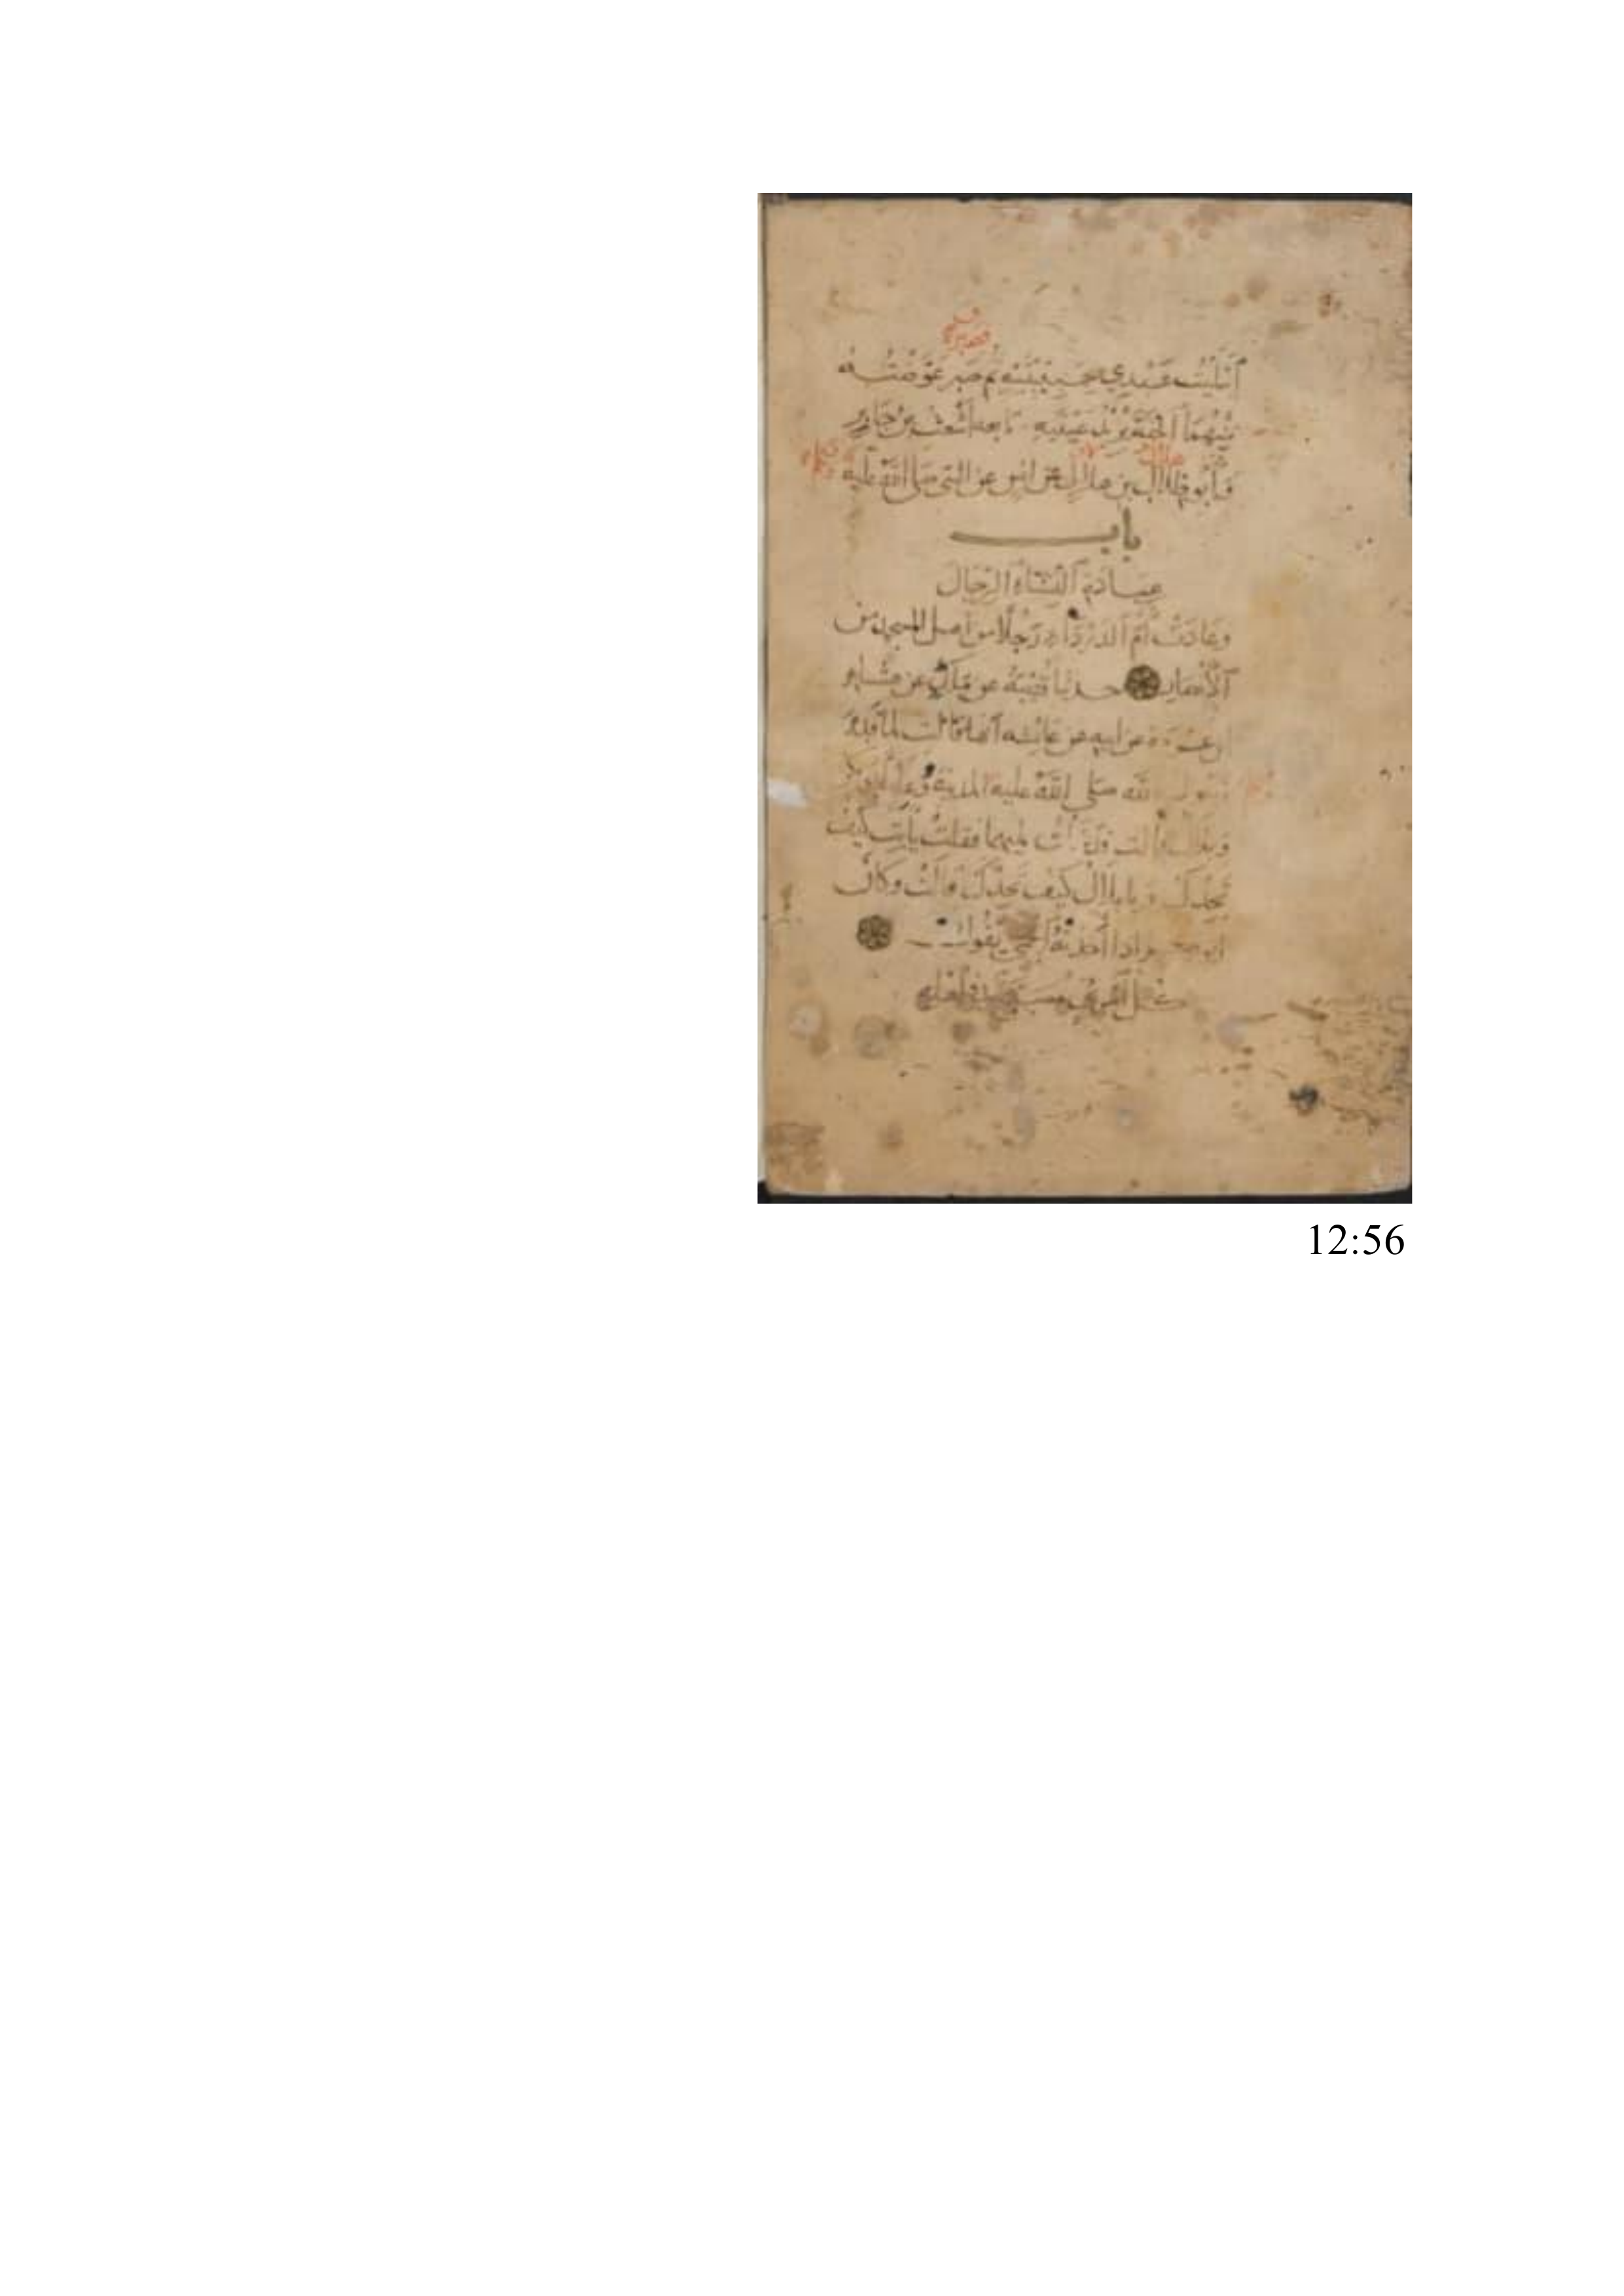 ابتليت عبدي بحبيبتيه ثم صبر عوضته
منهما الجنة يريد عينيه تابعه أشعث بن جابر
وأبو ظلال بن هلال عن انس عن النبي صلى الله عليه
باب
عيادة النساء الرجال
وعادت أم الدرداء رجلا من أهل المسجد من
الأنصار حدثنا قتيبة عن مالك عن هشام
بن عروة عن ابيه عن عائشة أنها قالت لما قدم
رسول الله صلى الله عليه المدينة وعك أبو بكر
وبلال قالت فدخلت عليهما فقلت يا أبت كيف
تجدك ويا بلال كيف تجدك قالت وكان
أبو بكر إذا أخذته الحمى يقول
كل امرئ مصبح في أهله
12:56